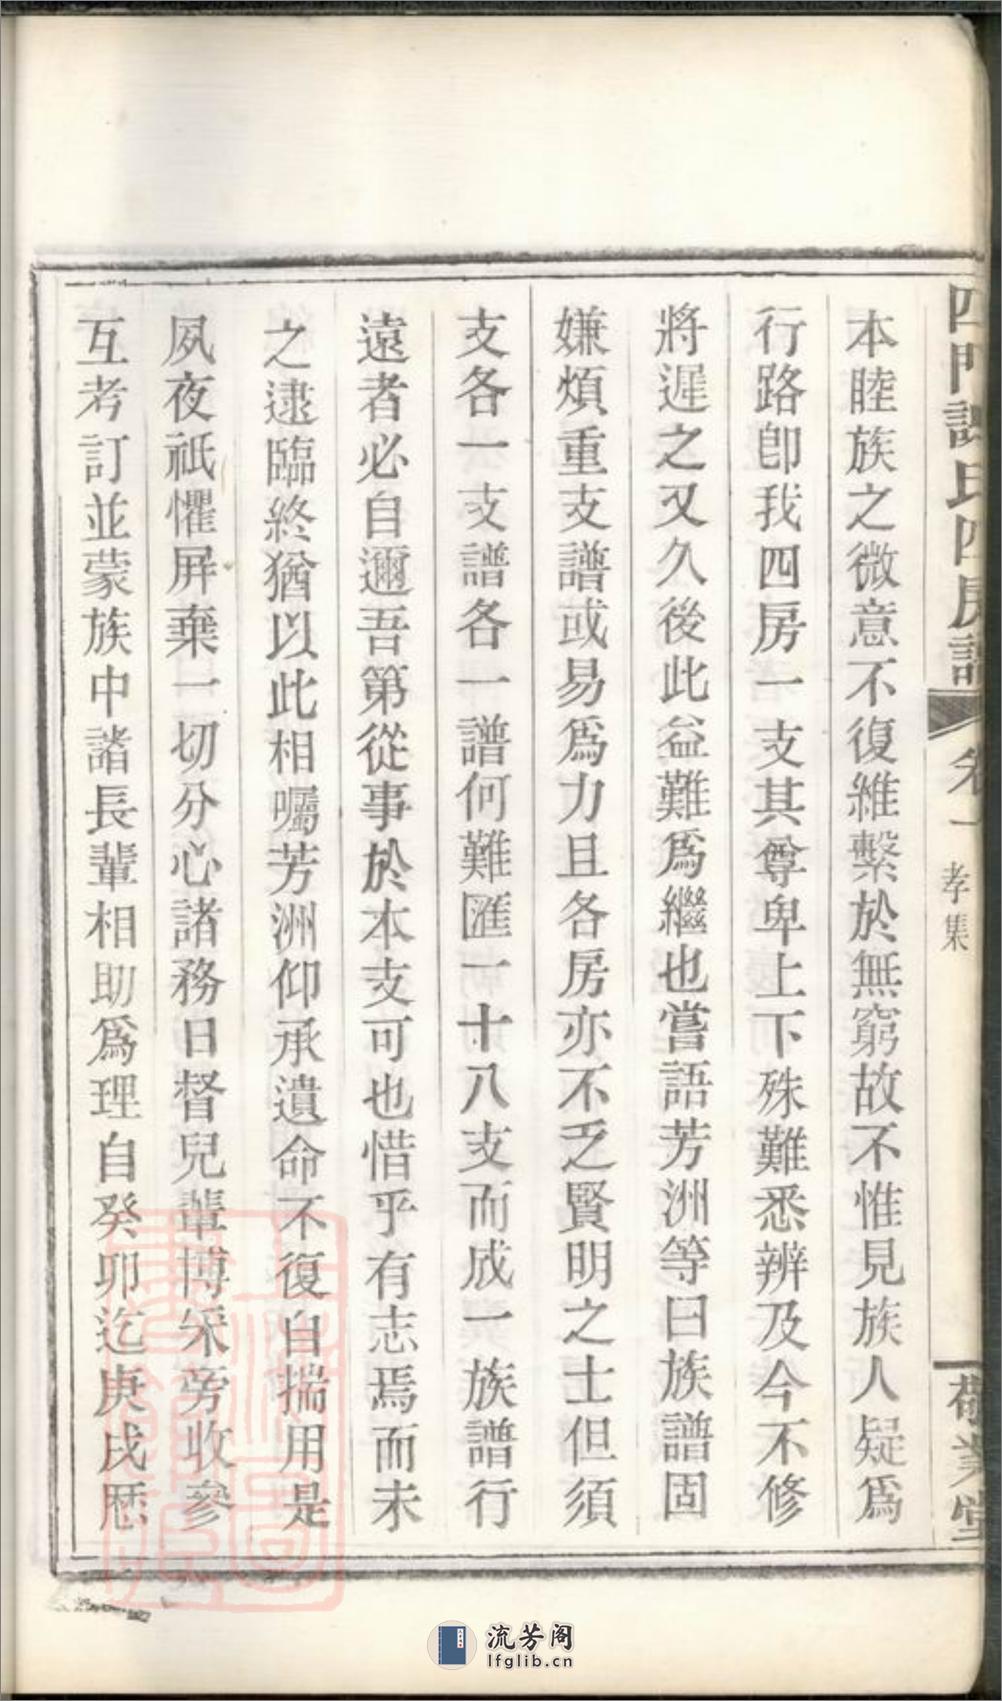 四門謝氏四房譜 卷一 孝集
本睦族之微意不復維繫於無窮故不惟見族人疑爲
行路卽我四房一支其尊卑上下殊難悉辨及今不修
將遲之又久後此益難爲繼也嘗語芳洲等曰族譜固
嫌煩重支譜或易爲力且各房亦不乏賢明之士但須
支各一支譜各一譜何難匯一十八支而成一族譜行
遠者必自邇吾第從事於本支可也惜乎有志焉而未
之逮臨終猶以此相囑芳洲仰承遺命不復自揣用是
夙夜祇懼屏棄一切分心諸務日督兒輩博采旁收參
互考訂並蒙族中諸長輩相助爲理自癸卯迄庚戌歷
流芳阁
lfglib.cn